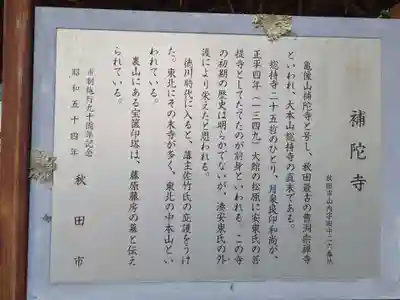 補陀寺
秋田市山内字田中二六番地
亀像山補陀寺と号し、秋田最古の曹洞宗禅寺
といわれ、大本山総持寺の直末である。
総持寺二十五哲のひとり、月泉良印和尚が、
正平四年（一三四九）大館の松原に安東氏の菩
提寺としてたてたのが前身といわれる。この寺
の初期の歴史は明らかでないが、湊安東氏の外
護により栄えたと思われる。
徳川時代に入ると、藩主佐竹氏の庇護をうけ
た。東北にその末寺が多く、東北の中本山とい
われている。
裏山にある宝篋印塔は、藤原藤房の墓と伝え
られている。
市制施行九十周年記念
昭和五十四年　秋田市